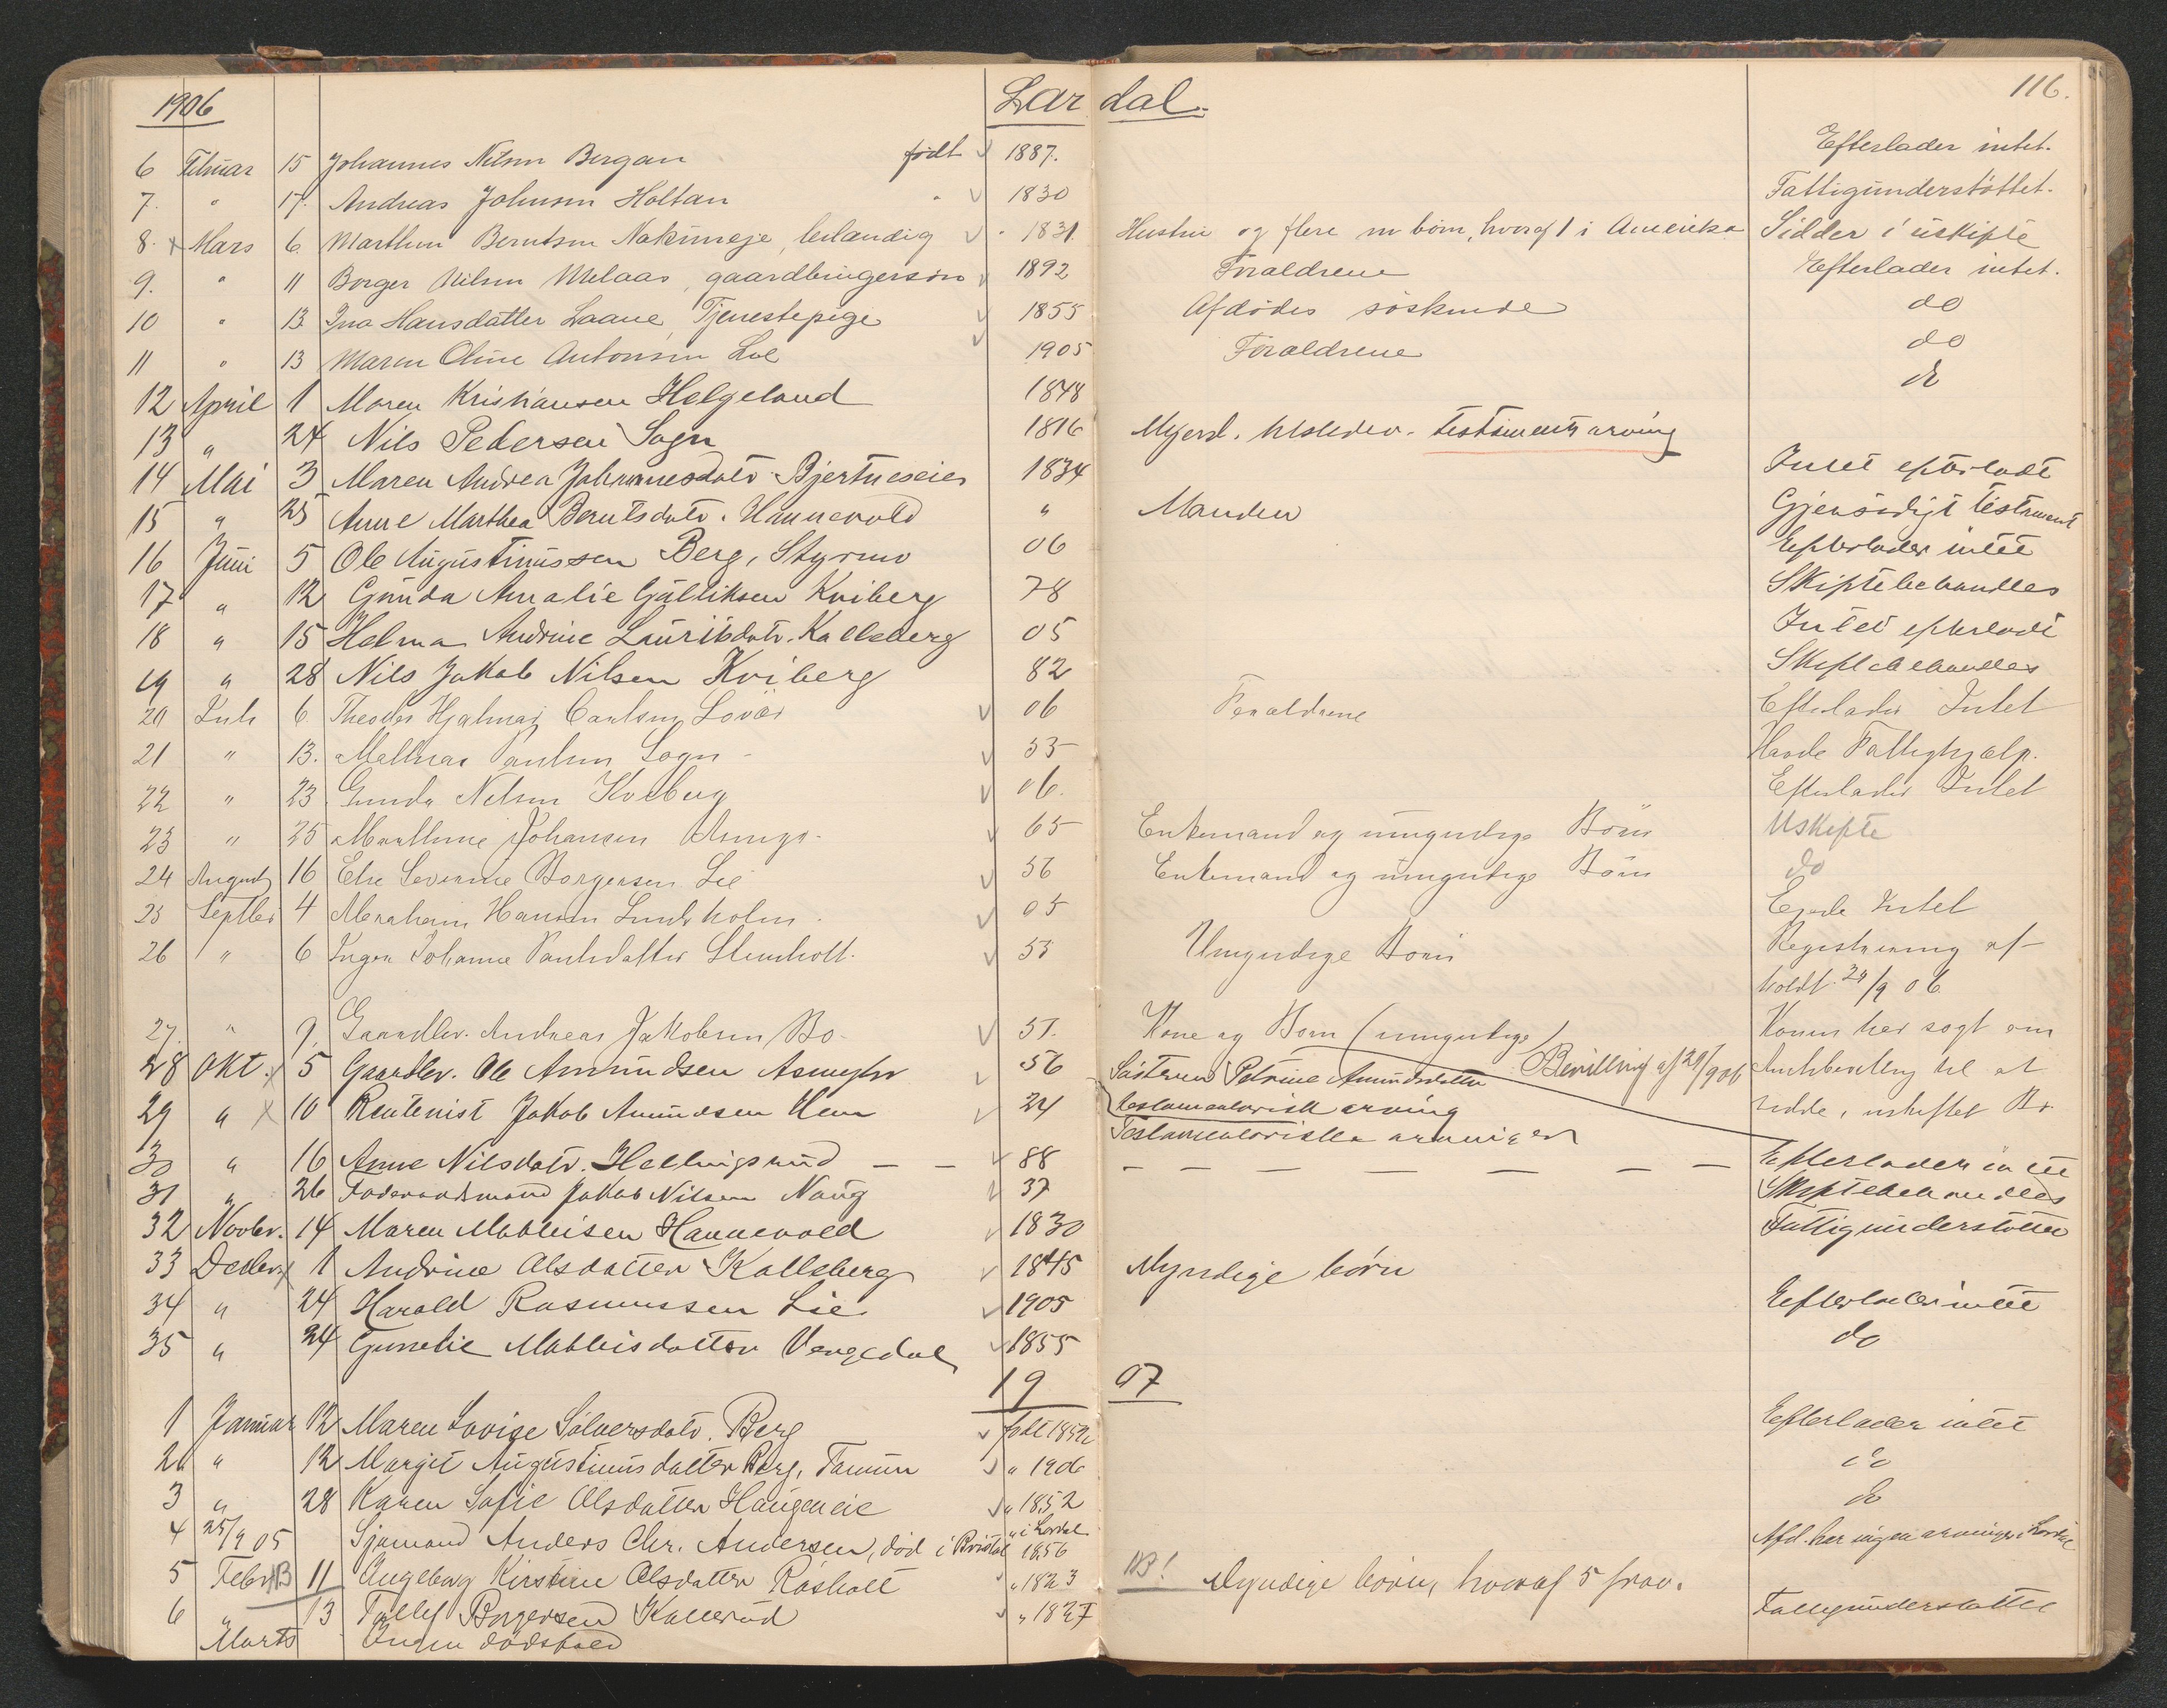 1906 Lardal. 116.
6 Februar 15 Johannes Nilsen Bergan født 1887. Efterlader intet.
7. " 17. Andreas Johnsen Holtan " 1830 Fattigunderstöttet.
8. x Mars 6. Marthin Berntsen leilændig " 1831 Hustru og flere m börn, hvoraf 1 i Amerika Sidder i uskifte
9. " 11 Borger Nilsen Melaas, gaardbrugersön 1892 Foraldrene Efterlader intet.
10 " 13 Ina Hansdatter Laane, Tjenestepige 1855 Afdödes söskende do
11 " 13 Maren Oline Antonsen Lie 1905 Foraldrene do
12 April 1 Maren Kristiansen Helgeland 1848 do
13 " 24 Nils Pedersen Sogn 1816 Myend. testaments arving
14 Mai 3 Maren Andrea Johannesdatr Bjertneseier 1834 Intet efterladt
15 " 25 Anne Marthea Berntsdatr. Hannevold " Manden Gjensidigt testament
16 Juni 5 Ole Augustinussen Berg, Styrmo 06 Efterlader intet
17 " 12 Gunda Amalie Gulliksen Kviberg 78 Skiftebehandles
18 " 15 Helma Andrine Lauritsdatr. Kallsberg 05 Intet efterladt
19 " 28 Nils Jakob Nilsen Kviberg 82 Skiftebehandles
20 Juli 6 Theodor Hjalmar Carlsen Lovås 06 Foraldrene Efterlader Intet
21 " 13. Mathias Paulsen Sogn 53 Havde Fattighjælp.
22 " 23. Gunda Nilsen Kviberg 06. Efterlader Intet
23 " 25 Marthine Johansen 65 Enkemand og umyndige Börn Uskifte
24 August 16 Else Severine Borgersen Lie 56 Enkemand og umyndige Börn do
25 Septbr 4 Abraham Hansen Lindholm. 05 Eiede Intet
26 " 6 Inger Johanne Paulsdatter Stenholt. 53 Umyndige Börn Registrering af-
holdt 24/9 06
27. " 9. Gaardbr. Andreas Jakobsen Bö. 51. Kone og Börn (umyndige) Konen har sögt om
28 Okt. x 5 Gaardbr. Ole Amundsen Asmyhr 56 Søsteren Petrine Amundsdatter Bevilling af 29/9 06 til at
29 " x 10 Rentenist Jakob Amundsen Hem 24 testamentarisk arving sidde i uskiftet Bo.
Testamentariske arvinger
30 " 16 Anne Nilsdatr. Hellingsrud – – 88 – – – – – – – – Efterlader intet
31 " 26 Føderaadsmand Jakob Nilsen Naug 37 Skiftebehandles
32 Novbr. 14 Maren Mathisen Hannevold 1830 Fattigunderstøttet
33 Decbr. x 1 Andrine Olsdatter Kallsberg 1845 Myndige børn
34 " 24 Harald Rasmussen Lie 1905 Efterlader intet
35 " 24 Gunelie Mathisdatter Vengedal 1855 do
1907
1 Januar 12 Maren Lovise Sølversdatr. Berg født 1852 Efterlader intet
2 " 12 Margit Augustinusdatter Berg, Tamun " 1906 do
3 " 28 Karen Sofie Olsdatter Haugeneie " 1852 do
4 25/9 05 Sjømand Anders Chr. Andersen, død i Bristol " i Lardal 1856 Afd. har ingen arvinger i Lardal
5 Febr. 11 Ingeborg Kirstine Olsdatter Råsholt " 1823 NB! Myndige børn, hvoraf 5 frav.
6 " 13 Tollef Borgersen Kallerud " 1827 Fattigunderstøttet
Marts Ingen dødsfald